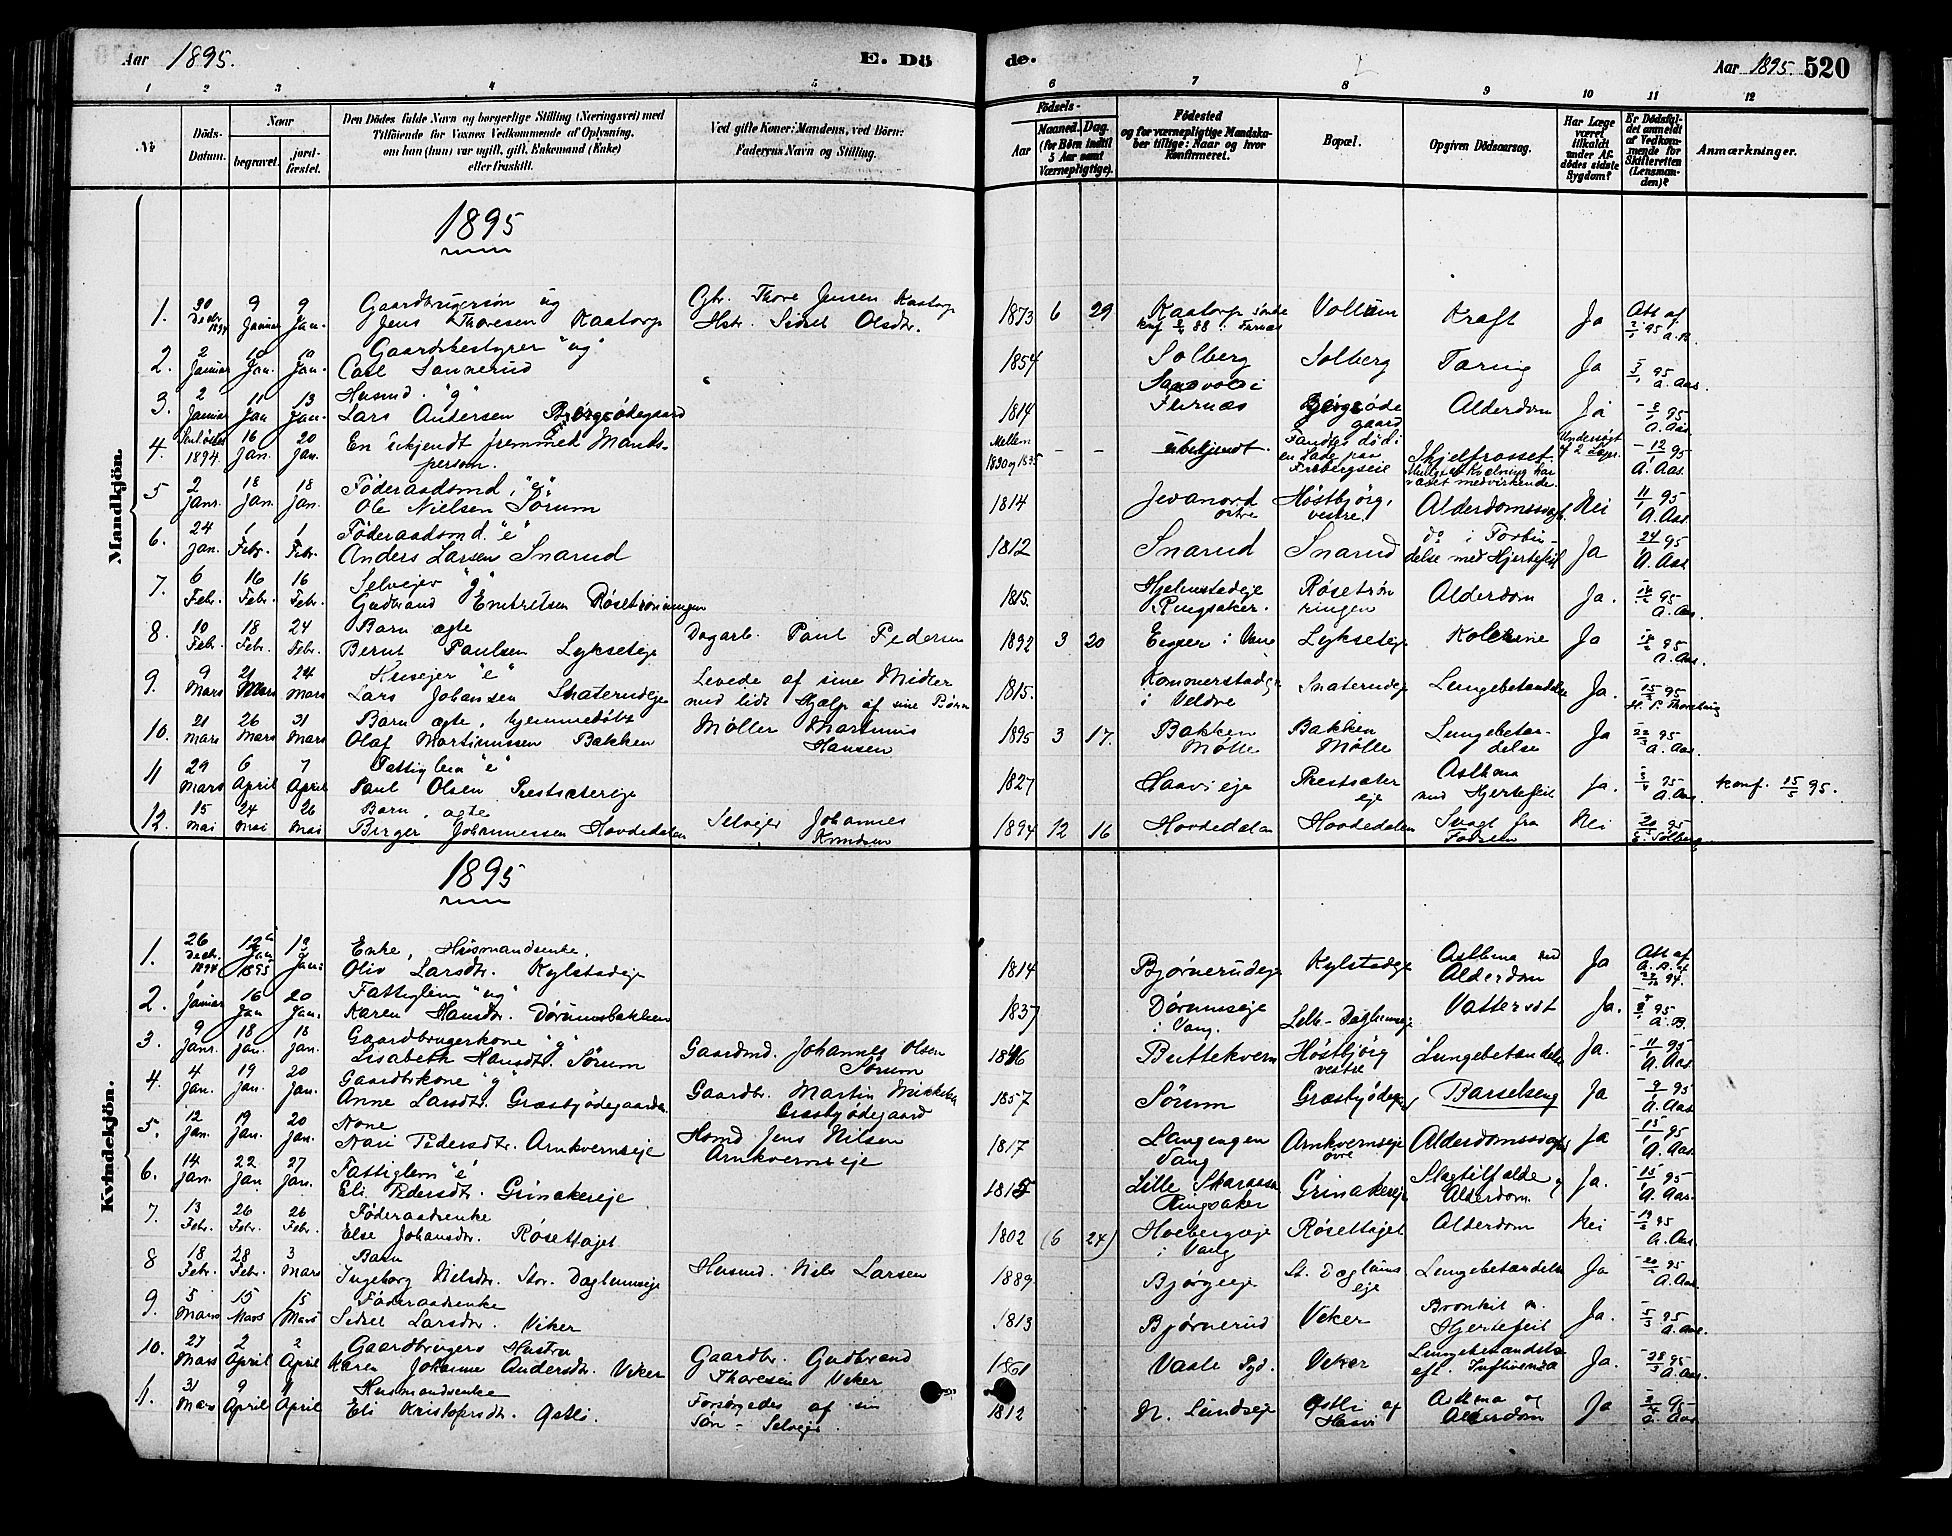 Aar 1895. E. Dö de. Aar 1895. 520
1 2 3 4 5 6 7 8 9 10 11 12
No
Döds-Datum.
Naar
begravet.
jord-fæstet.
Den Dödes fulde Navn og borgerlige Stilling (Næringsvei) med
Tilföiende for Voxnes Vedkommende af Oplysning,
om han (hun) var ugift, gift, Enkemand (Enke)
eller fraskilt.
Ved gifte Koner: Mandens, ved Börn:
Faderens Navn og Stilling.
Födsels-
Aar
Maaned. Dag.
(for Börn indtil
5 Aar samt
Værnepligtige).
Födested
og for værnepligtige Mandska-
ber tillige: Naar og hvor
konfirmeret.
Bopæl.
Opgiven Dödsaarsag.
Har Læge
været
tilkaldt
under Af-
dödes sidste
Sygdom?
Er Dödsfal-
det anmeldt
af Vedkom-
mende for
Skifteretten
(Lensman-
den)?
Anmærkninger.
Mandkjön.
1895
1. 30 Decbr. 1894 9 Januar 9 Jan. Gaardbrugersøn ug Gbr. Thore Jensen Kaatorp
Jens Thoresen Kaatorp Hstr. Sidsel Olsdtr. 1873 6 29 Kaatorp Voldum Kræft Ja Att af
2. 2 Januar 10 Jan. 10 Jan. Gaardsbestyrer "ug"
Carl Sannerud 1854 Solberg Solberg Tæring Ja 95 A. Aas.
3. 2 Januar 11 Jan 13 Jan. Husmd. "g"
Lars Andersen Bjørgsødegaard 1814 Furnæs Bjørgsøde gaard Alderdom Ja 95 A. Aas.
4. 1894. 16 Jan. 20 Jan. En ukjendt fremmed Mands-
person. Mellem 1830 og 1835 - - ubekjendt. Fandtes død i
en Lade paa
Frøbergseie Ihjelfrosset. Undersøgt af 2 Læger. 12/1 95 A. Aas.
5 2 Janr. 18 Jan. 18 Jan. Føderaadsmd. "e"
Ole Nielsen Sørum 1814 Jevanord østre Høstbjørg, vestre. Alderdomssvagh. Nei 11/1 95 A. Aas.
6. 24 Jan. 1 Febr. 1 Febr. Føderaadsmd. "e"
Anders Larsen Snarud 1812 Snarud Snarud do i Forbin-
delse med Hjertefeil Ja 24/1 95 A. Aas.
7. 6 Febr. 16 Febr. 16 Febr. Selveier "g"
Gudbrand Røsetrøningen 1815. Hjelmstadeje Ringsaker. Røsetrøn ringen Alderdom Ja. 95 A. Aas.
8. 10 Febr. 18 Febr. 24 Febr. Barn ægte
Bernt Paulsen Lykseteje Dagarb. Paul Pedersen 1892 3 20 i Vang Lykseteje Kolerine Ja 95 A. Aas.
9. 9 Mars 21 Mars 24 Mars "e" Levede af sine Midler
Lars Johansen Skaterudeje med lidt Hjælp af sine Børn 1815. i Veldre Snaterudeje Lungebetændelse Ja. 15/3 95
10. 21 Mars 26 Mars 31 Mars Barn ægte, hjemmedøbt Møller Martinus
Olaf Martinussen Bakken Hansen 1895 3 17. Bakken Mølle Bakken Mølle Lungebetæn-
delse Ja 22/3 95 A. Aas.
11 29 Mars 6 April 7 April Fattiglem "e"
Paul Olsen Prestsætereje 1827 Haavi eje Prestsæter eje Asthma
med Hjertefeil Ja. 95 A. Aas. konf. 15/5 95.
12. 15 Mai 24 Mai 26 Mai Barn, ægte Selvejer Johannes
Birger Johannessen Hovdedalen Knudsen 1894 12 16 Hovdedalen Hovdedalen Svagt fra
Fødsen Nei 20/5 95 Solberg
Kvindekjön.
1895
1. 26 Decbr. 1894 12 Jan 1895 Jan. Enke, Husmandsenke.
Oliv Larsdtr. Kylstadeje 1814 Bjørnerudeje Kylstadeje Asthma
Alderdom Ja Att af
2. 1 Januar 16 Jan 20 Jan. Fattiglem "ug"
Karen Hansdtr. Dørumsbakken 1837 Dørumseje i Vang. Daglumseje Vattersot Ja. 95 A. B.
3. 9 Janr. 18 Jan. 18 Jan. Gaardbrugerkone "g" Gaardmd. Johannes Olsen
Lisabeth Hansdtr. Sørum Sørum 1846 Buttekvern Høstbjørg vestre Lungebetændelse Ja. 11/1 95 A. Aas.
4. 4 Jan. 19 Jan. 20 Jan. Gaardbrkone "g" Gaardbr. Martin Mikkelsen
Anne Larsdtr. Græsbjødegaarden Græsbjødegaard 1857 Sørum Græsbjødegd Barselseng Ja 95 A. Aas.
5. 12 Jan. 19 Jan. 20 Jan. Kone Hsmd Jens Nilsen
Mari Pedersdtr. Arnkvernseje Arnkvernseje 1817 Langengen Vang Arnkvernseje øvre Alderdomssvaghed Ja 15/1 95 A. Aas.
6. 14 Jan. 22 Jan 27 Jan. Fattiglem "e"
Eli Pedersdtr. Grinakereje 1815 Lille Ringsaker Grinakereje Slagtilfælde og
Alderdom Ja. 15/1 95 A. Aas.
7. 13 Febr. 26 Febr. 26 Febr. Føderaadsenke
Else Johansdtr. Røsettajet 1802 (6 24) Hoebergseje i Vang Røsettajet Alderdom Nei 19/2 95 A. Aas.
8 18 Febr. 28 Febr. 3 Mars Barn
Ingeborg Nielsdtr. Stor. Daglumseje Husmd. Nils Larsen 1889 Bjørgeeje St. Daglums eje Lungebetændelse Ja 20/2 95 A. Aas.
9. 5 Mars 15 Mars 15 Mars Føderaadsenke
Sidsel Larsdtr. Viker 1813 Bjørnerud Veker Bronkit m.
Hjertefeil Ja. 5/3 95 A. Aas.
10. 27 Mars 2 April 2 April Gaardbrugers Hustru Gaardbr. Gudbrand
Karen Johanne Andersdtr. Veker Thoresen Veker 1861 Vaale Pgd. Veker Lungebetændelse
eft. Influenza Ja. 28/3 95 A. Aas.
11. 31 Mars 9 April April Husmandsenke Forsørgedes af sin
Eli Kristofersdtr. Østli. Søn - Selvejer 1812 N. Lundseje Østli af Haavi Asthma og
Alderdom Ja 95 A. Aas.